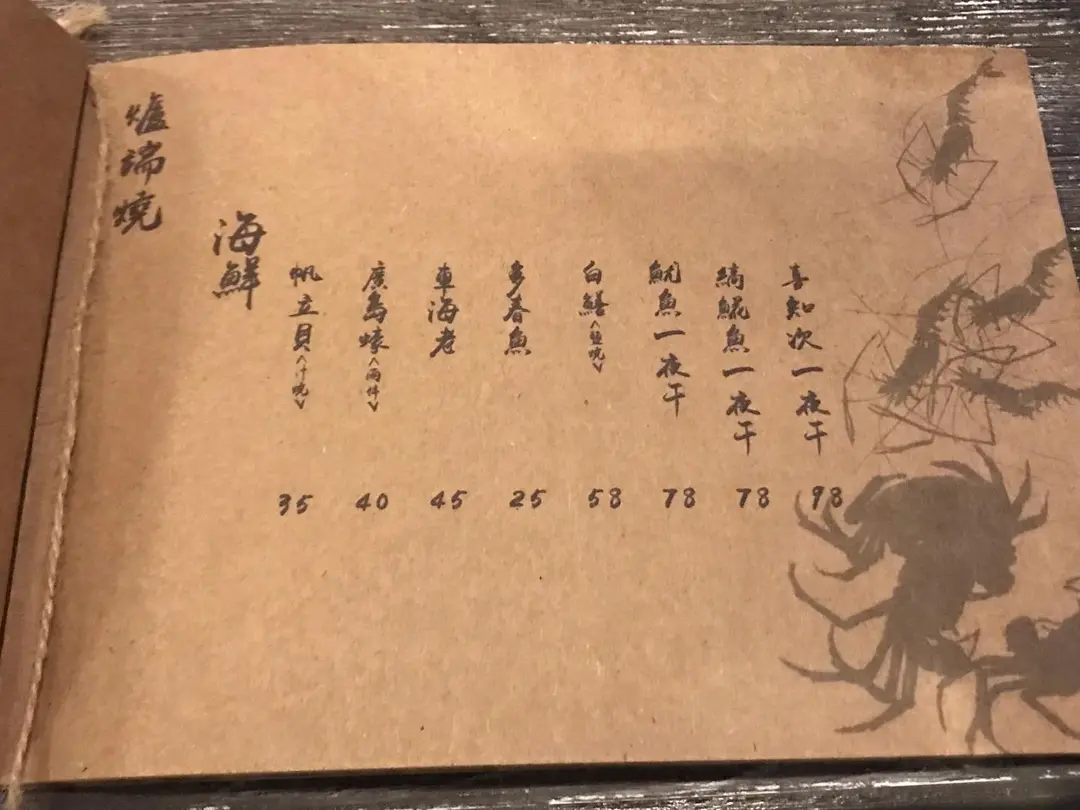 爐端燒
海鮮
帆立貝<汁燒>
廣島蠔<兩件>
車海老
多春魚
白鱔<鹽燒>
魷魚一夜干
縞鯤魚一夜干
喜知次一夜干
35 40 45 25 58 78 78 98